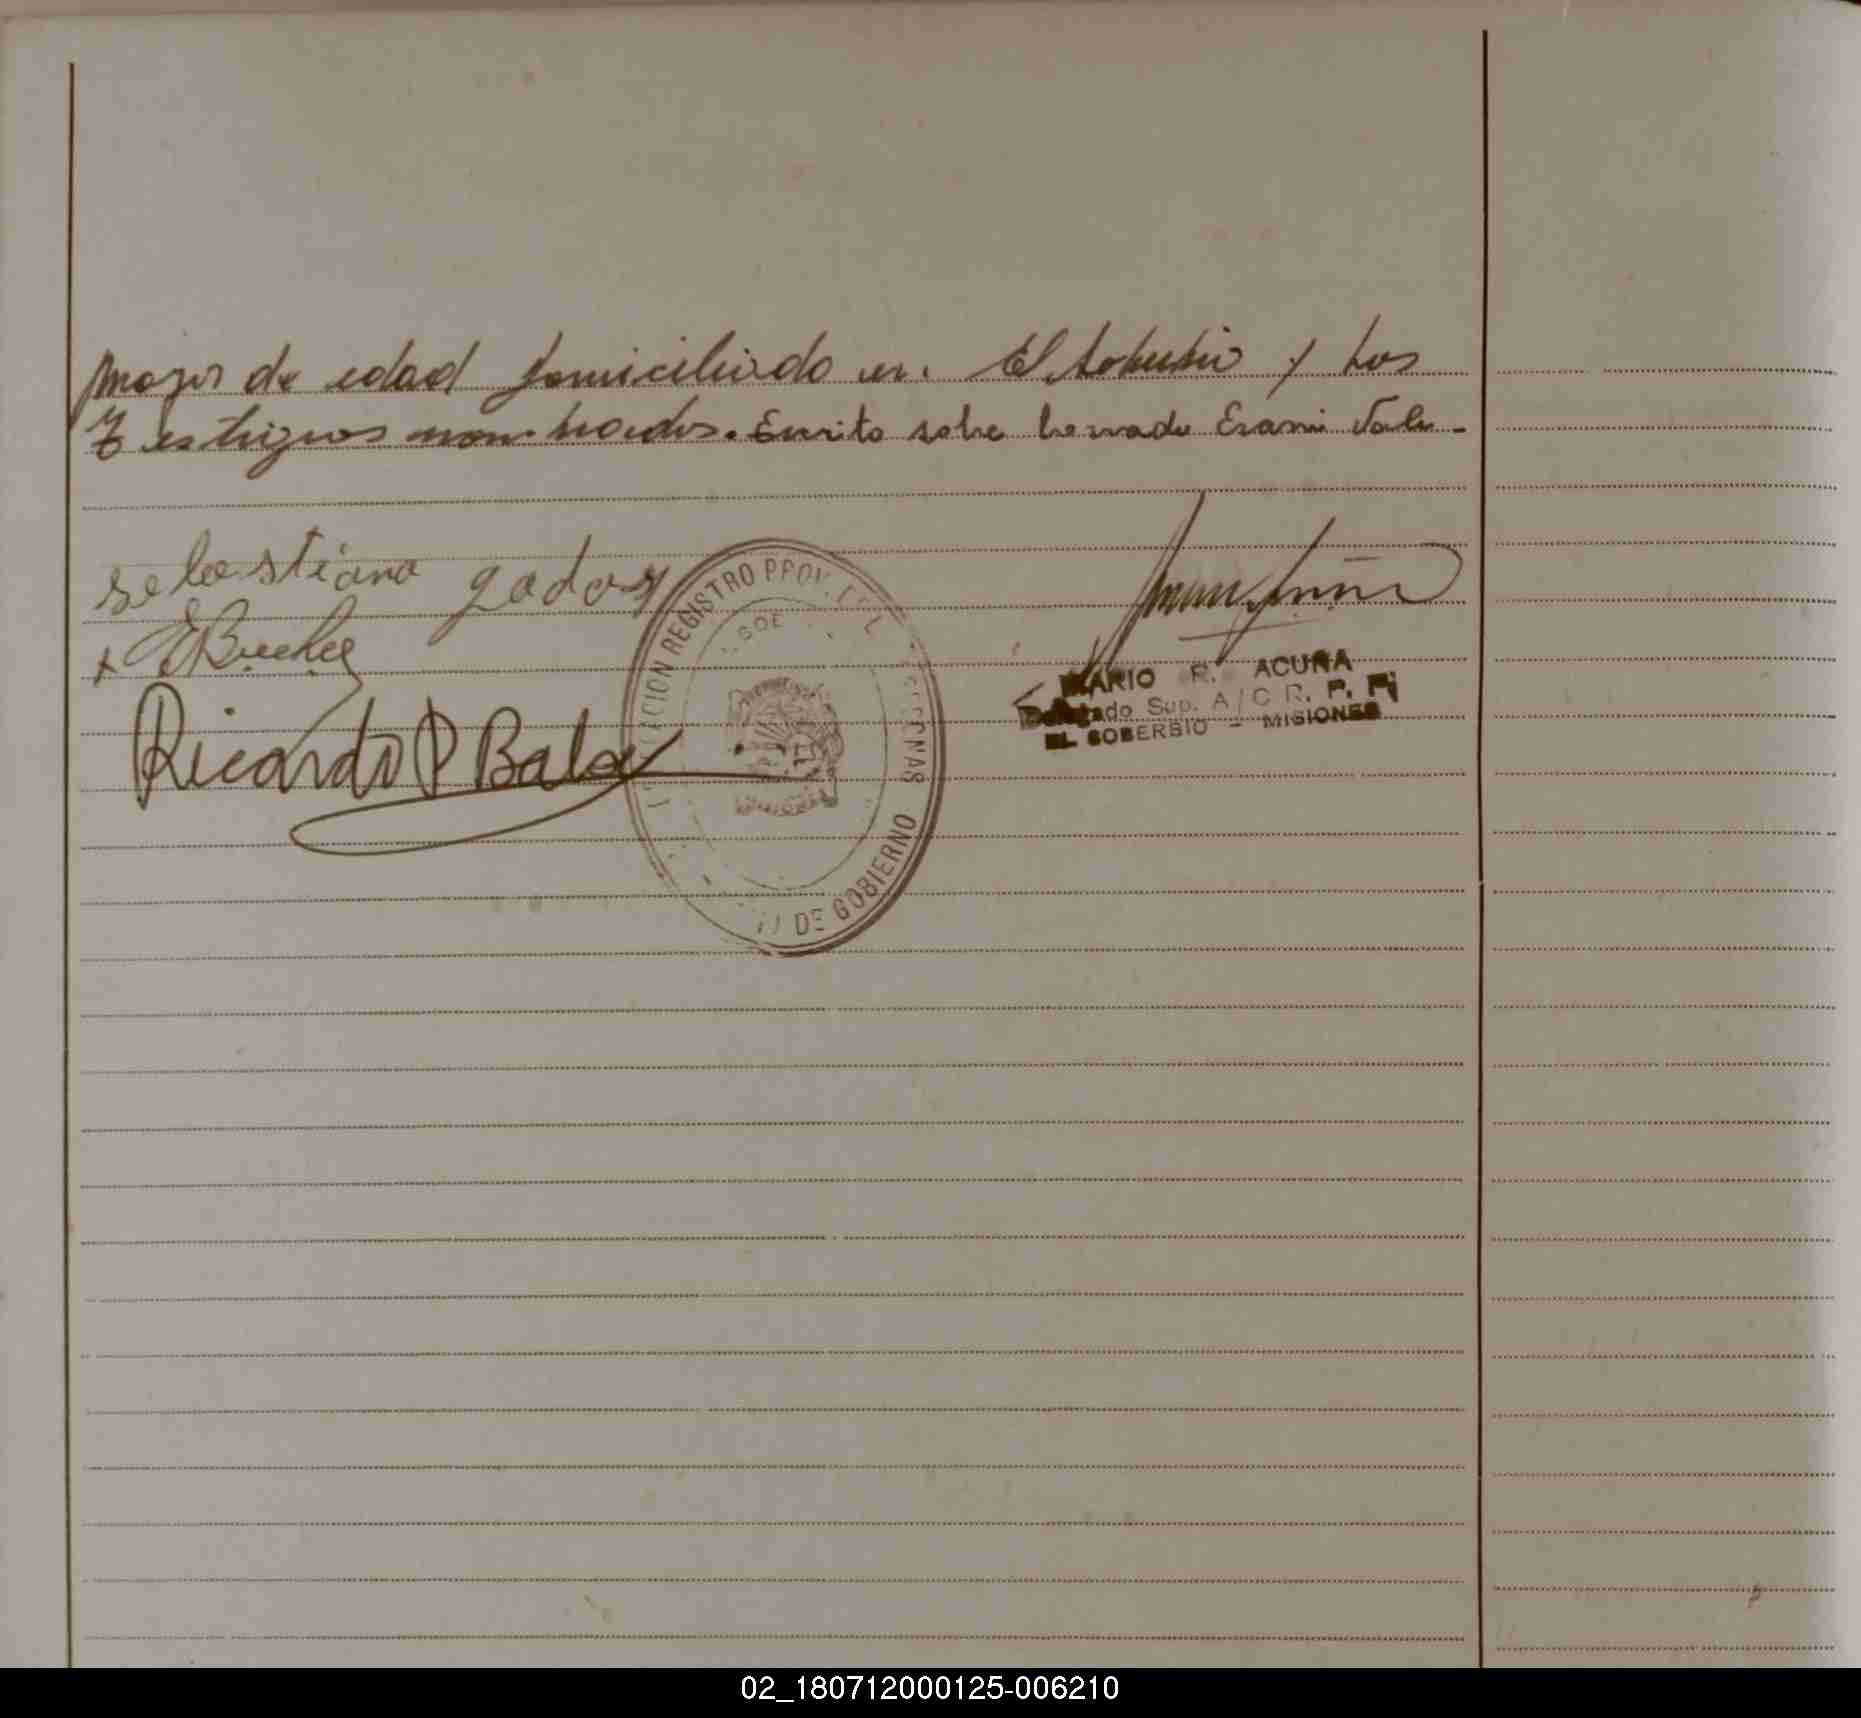 mayor de edad domiciliado en El Soberbio y los
Testigos nombrados. Escrito sobre borrado Erami Vale.-
sebastiana godoy
Ricardo P Bala
INSPECCION REGISTRO PROV. DE L PERSONAS
GOB
DE GOBIERNO
MARIO R. ACUÑA
Delegado Sup. A/C R. P. P.
EL SOBERBIO - MISIONES
02_180712000125-006210